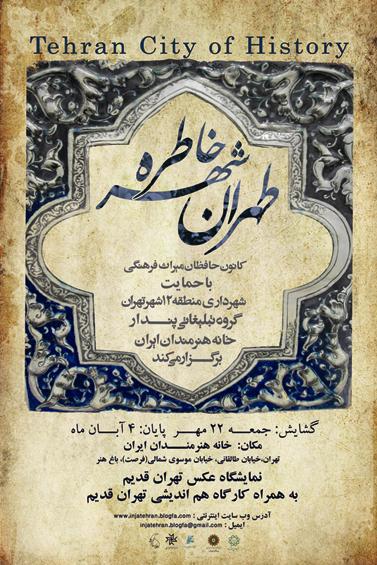 Tehran City of History
طهران شهر خاطره
کانون حافظان میراث فرهنگی
با حمایت
شهرداری منطقه ۱۲ شهر تهران
گروه تبلیغاتی پندار
خانه هنرمندان ایران
برگزار می کند
گشایش: جمعه ۲۲ مهر پایان: ۴ آبان ماه
مکان: خانه هنرمندان ایران
تهران،خیابان طالقانی، خیابان موسوی شمالی(فرصت)، باغ هنر
نمایشگاه عکس تهران قدیم
به همراه کارگاه هم اندیشی تهران قدیم
آدرس وب سایت اینترنتی : www.injatehran.blogfa.com
ایمیل : injatehran.blogfa@gmail.com